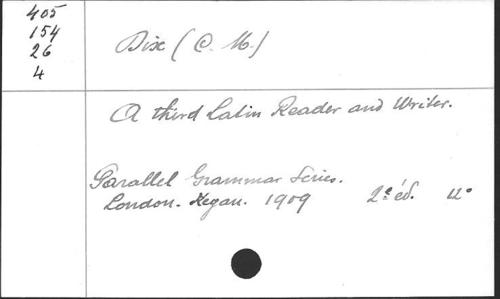 405
154
26
4
Dix (C. M.)
A third Latin Reader and Writer.
Parallel Grammar Series.
London. Kegan. 1909 2e éd. 12°